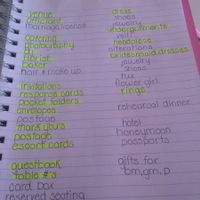 venue
officiant
marriage license
catering
photography
DJ
florist
baker
hair + make up
invitations
response cards
pocket folders
envelopes
postage
thank yous
postage
escort cards
guestbook
table #'s
card box
reserved seating
dress
shoes
jewelry
undergarments
veil
headpiece
alterations
bridesmaid dresses
jewelry
shoes
tux
flower girl
rings
rehearsal dinner
hotel
honeymoon
passports
gifts for
bm, gm, p